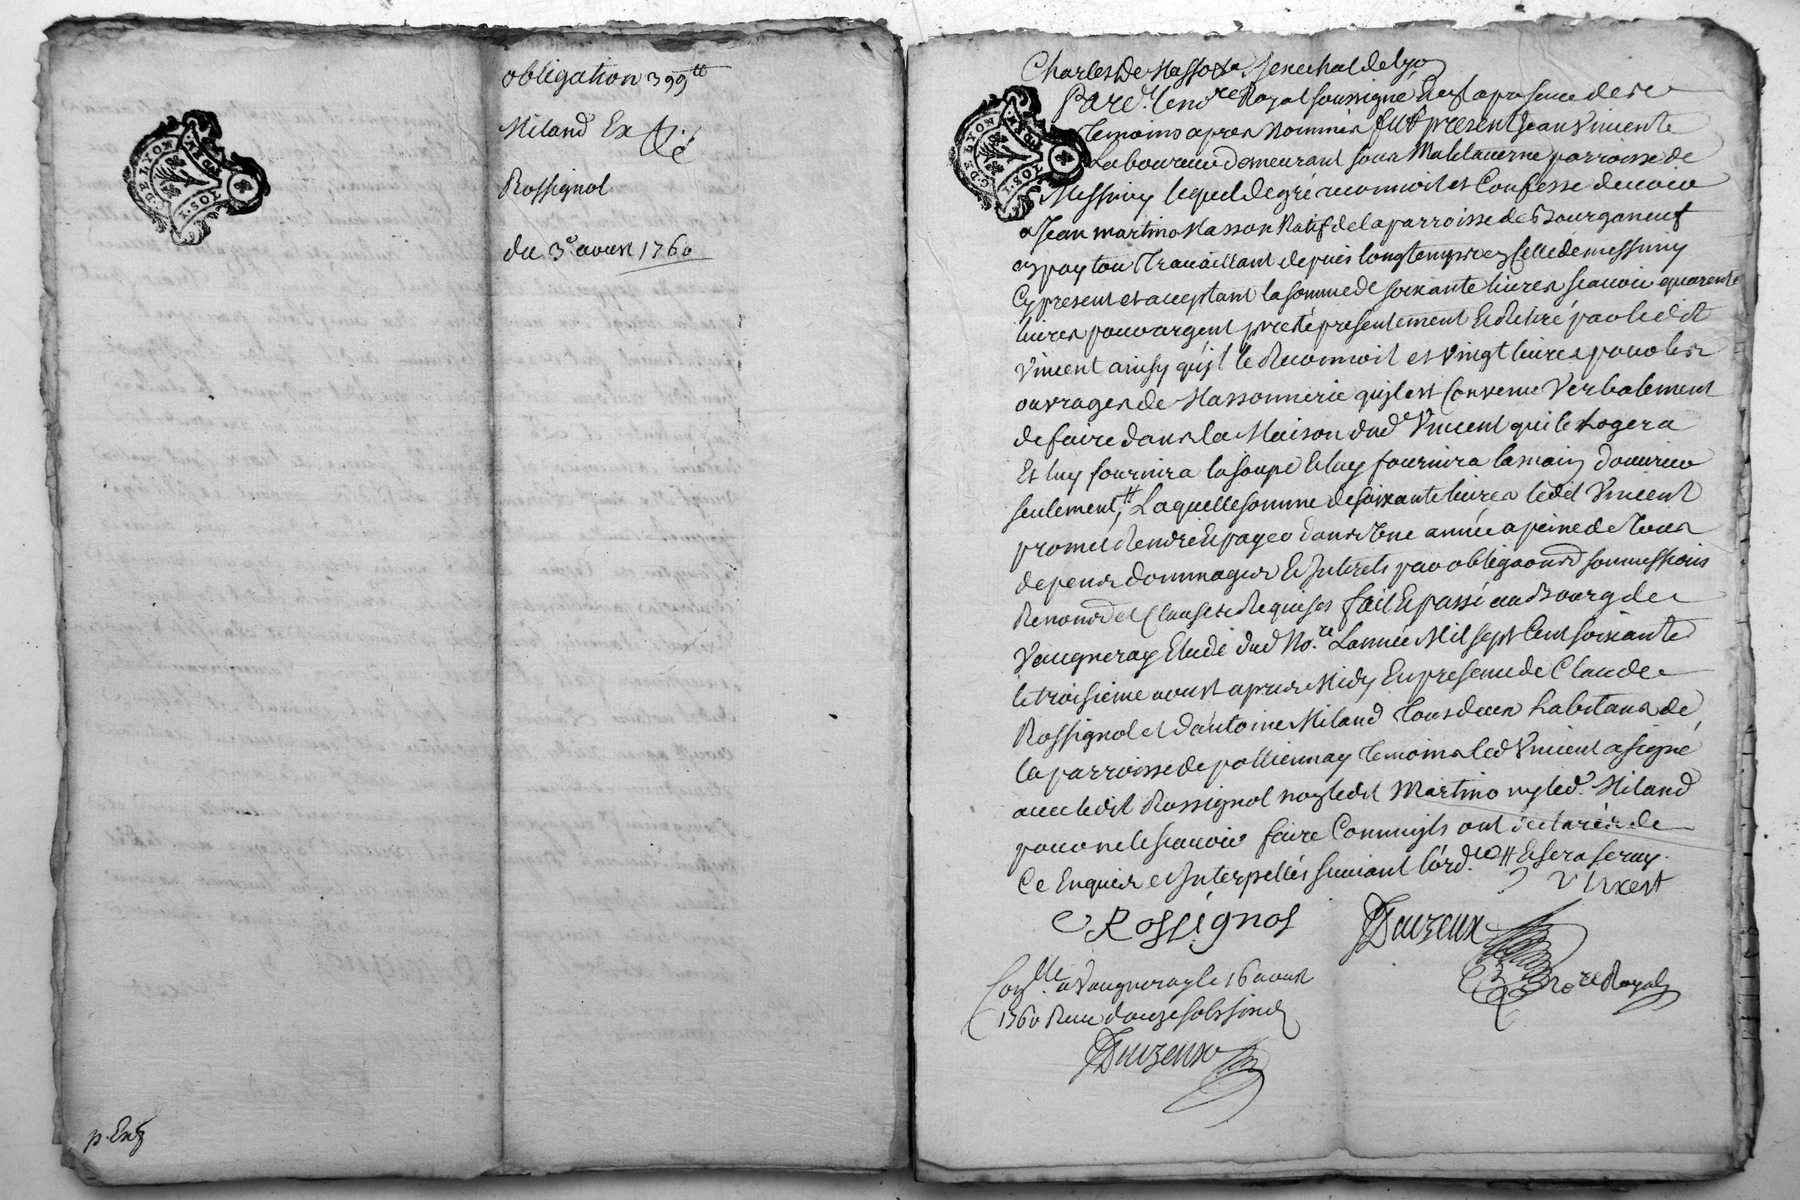 obligation 399tt
Miland Ex
Rossignol
du 3e aoust 1760
G. DE LYON
1. SOL
p. Ex
Charles De Masso Senechal de Lyo
Pard.t le no.re Royal soussigné Et en la presence des
Temoins apres Nommés fut present Jean Vincent
Laboureur demeurant sous Malataverne parroisse de
Messimy lequel de gré reconnoit et Confesse devoir
a Jean martino Masson Natif de la parroisse de Bourganeuf
Travaillant depuis longtemps celle de messimy
Cy present et acceptant la somme de soixante livres scavoir quarente
livres pour argent presté presentement Et Retiré par ledit
Vincent ainsy qu'jl le Reconnoit et vingt livres pour les
ouvrages de Massonnerie qujl est Convenu Verbalement
de faire dans la Maison dud Vincent qui le Logera
Et luy fournira la soupe Et luy fournira la main d'ouvrier
seulement, Laquelle somme de soixante livres ledit Vincent
promet Rendre Et payer dans Une année a peine de Tous
depens dommages Et Interets par obligaons soumissions
Renons et Clauses Requises fait Et passé au Bourg de
Vaugneray Etude dud No.re L'année Mil sept Cent soixante
le troisieme aoust apres Midy En presence de Claude
Rossignol et d'antoine Miland Tous deux habitans de
la parroisse de pollionnay Temoins led Vincent a signé
avec ledit Rossignol non ledit Martino ny led. Miland
pour ne le scavoir faire Comm'ils ont declaré de
Ce Enquis et Interpellés suivant l'ord.ce Et sera scray.
Vinxent
C Rossignol
Dauzeux
No.re Royal
Con.lle a Vaugneray le 16 aoust
1760 Reçu douze sols six d
Dauzeux